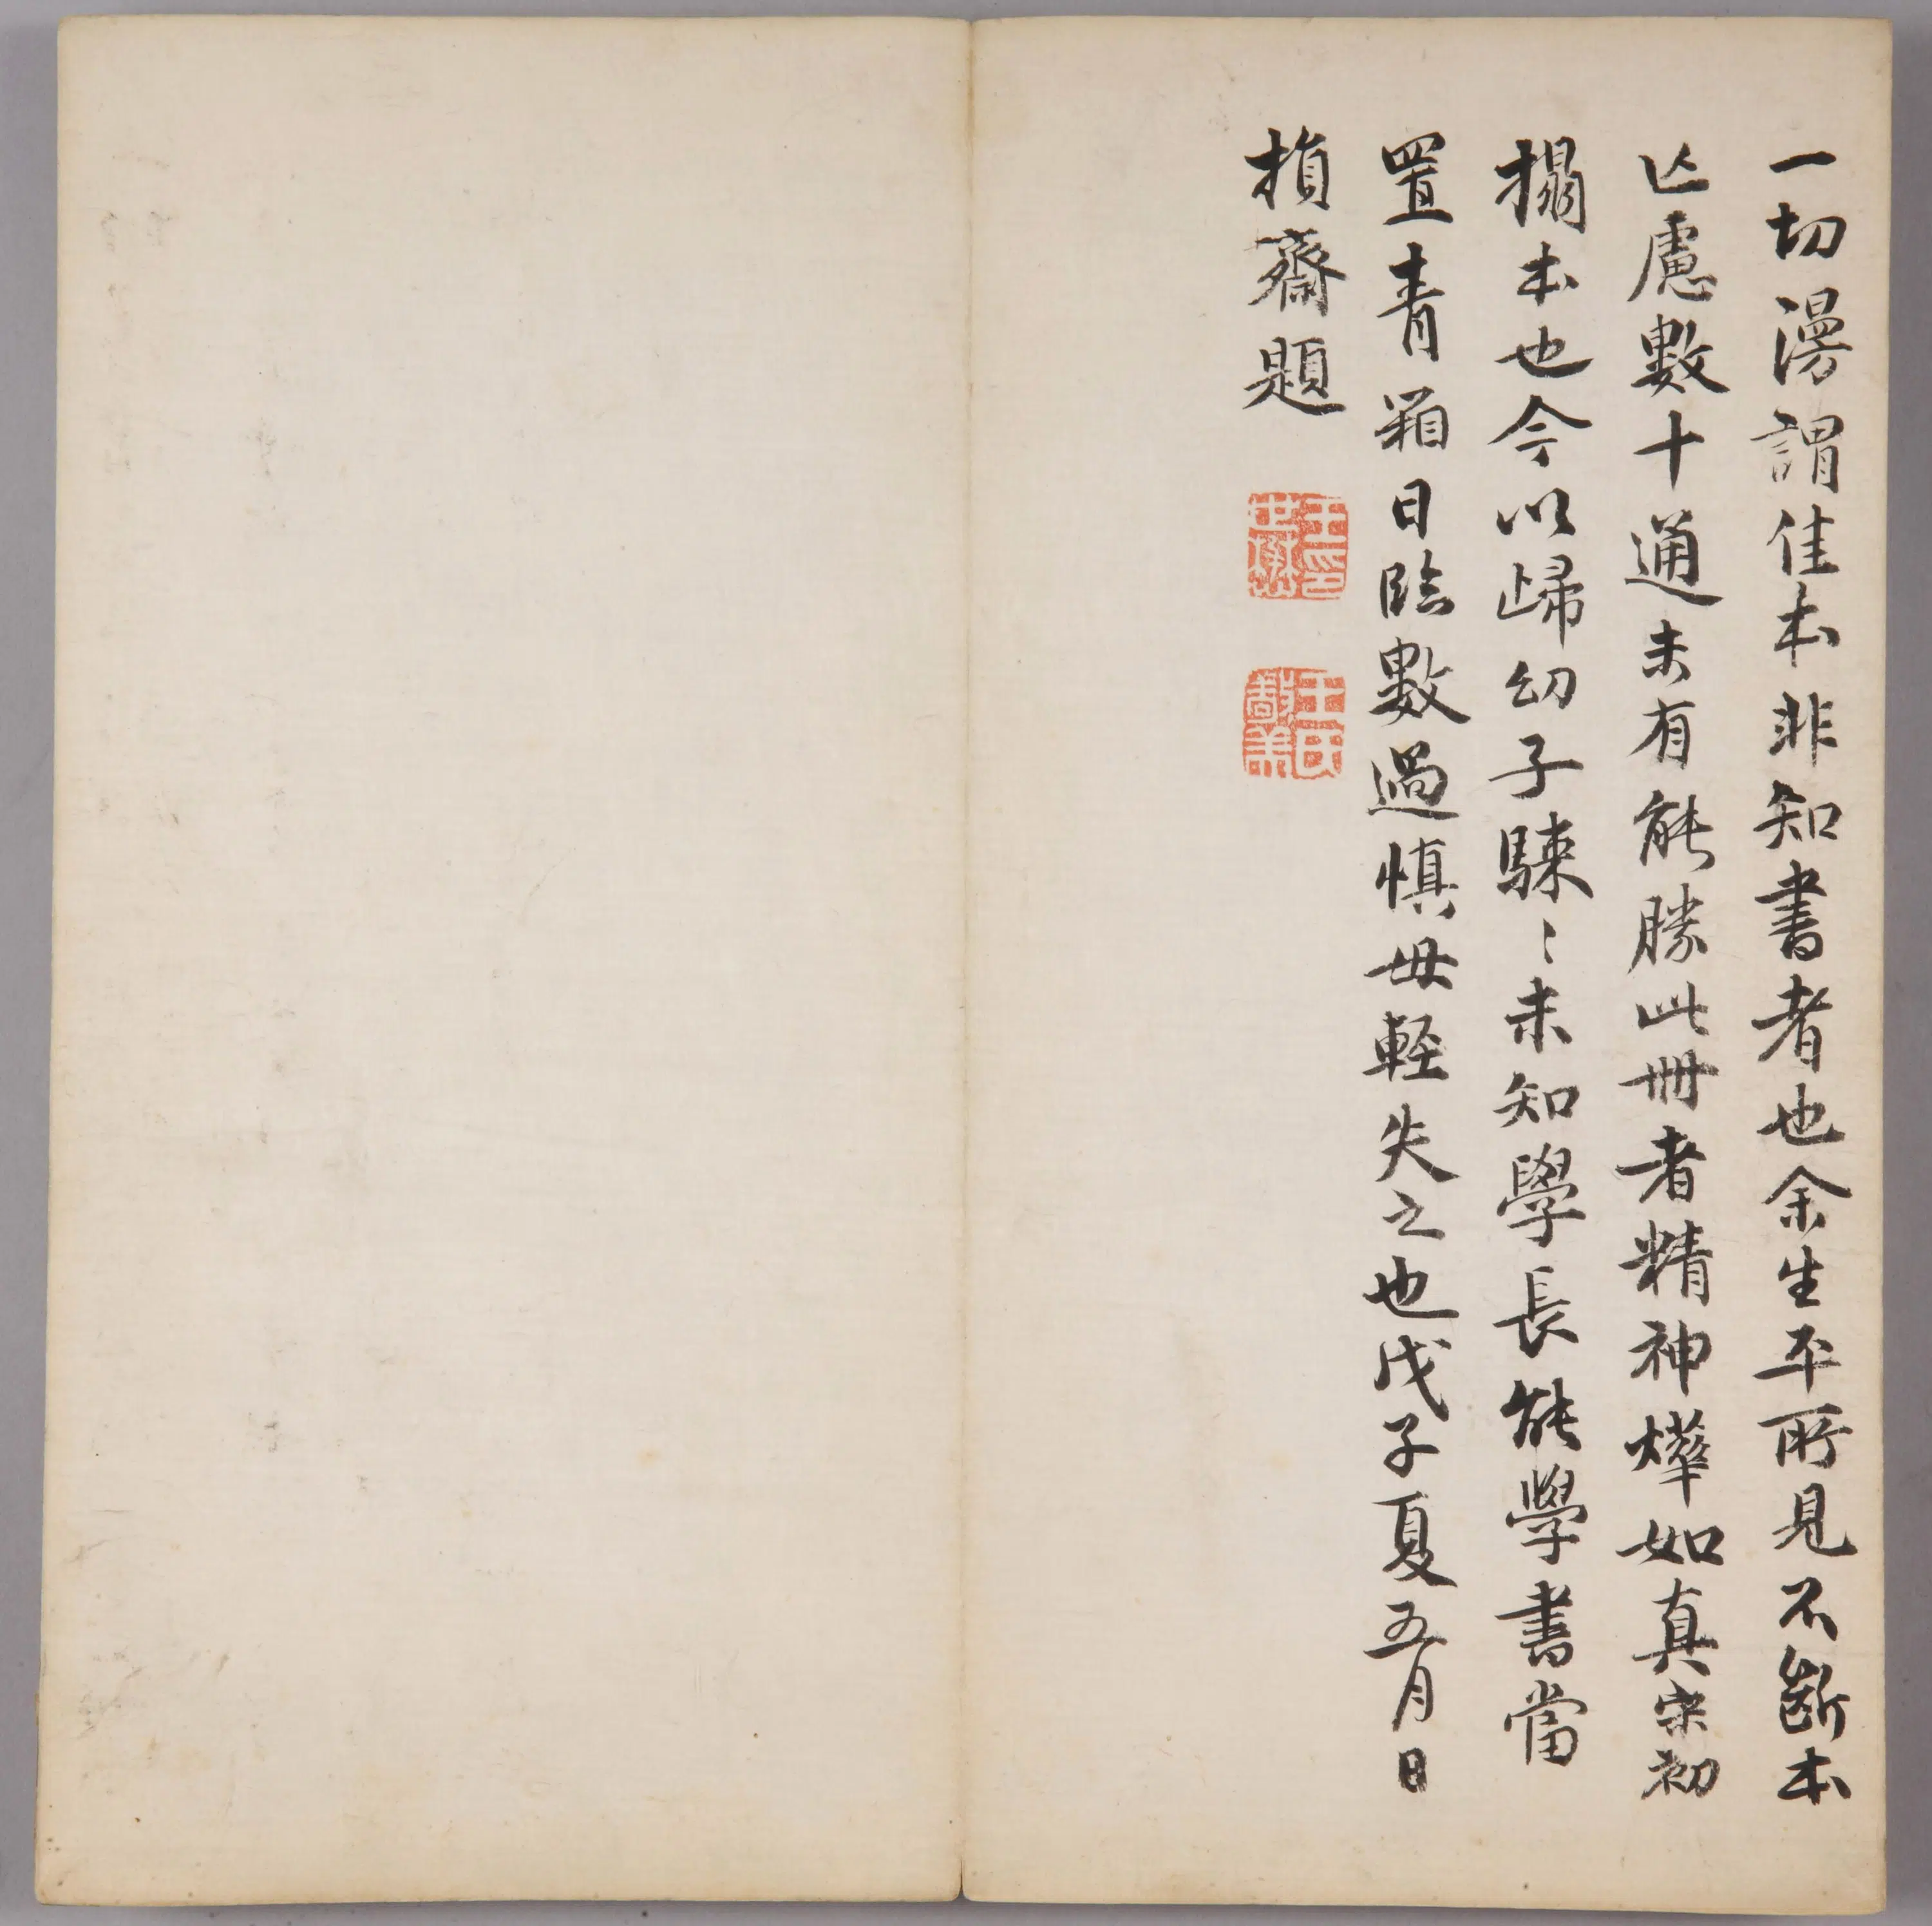 一切漫謂佳本非知書者也余生平所見不斷本
亾慮數十通未有能勝此冊者精神燁如真宋初
搨本也今以歸幼子騋〻未知學長能學書當
置青箱日臨數過慎毋輕失之也戊子夏五月日
損齋題
王印
世懋
王氏
敬美